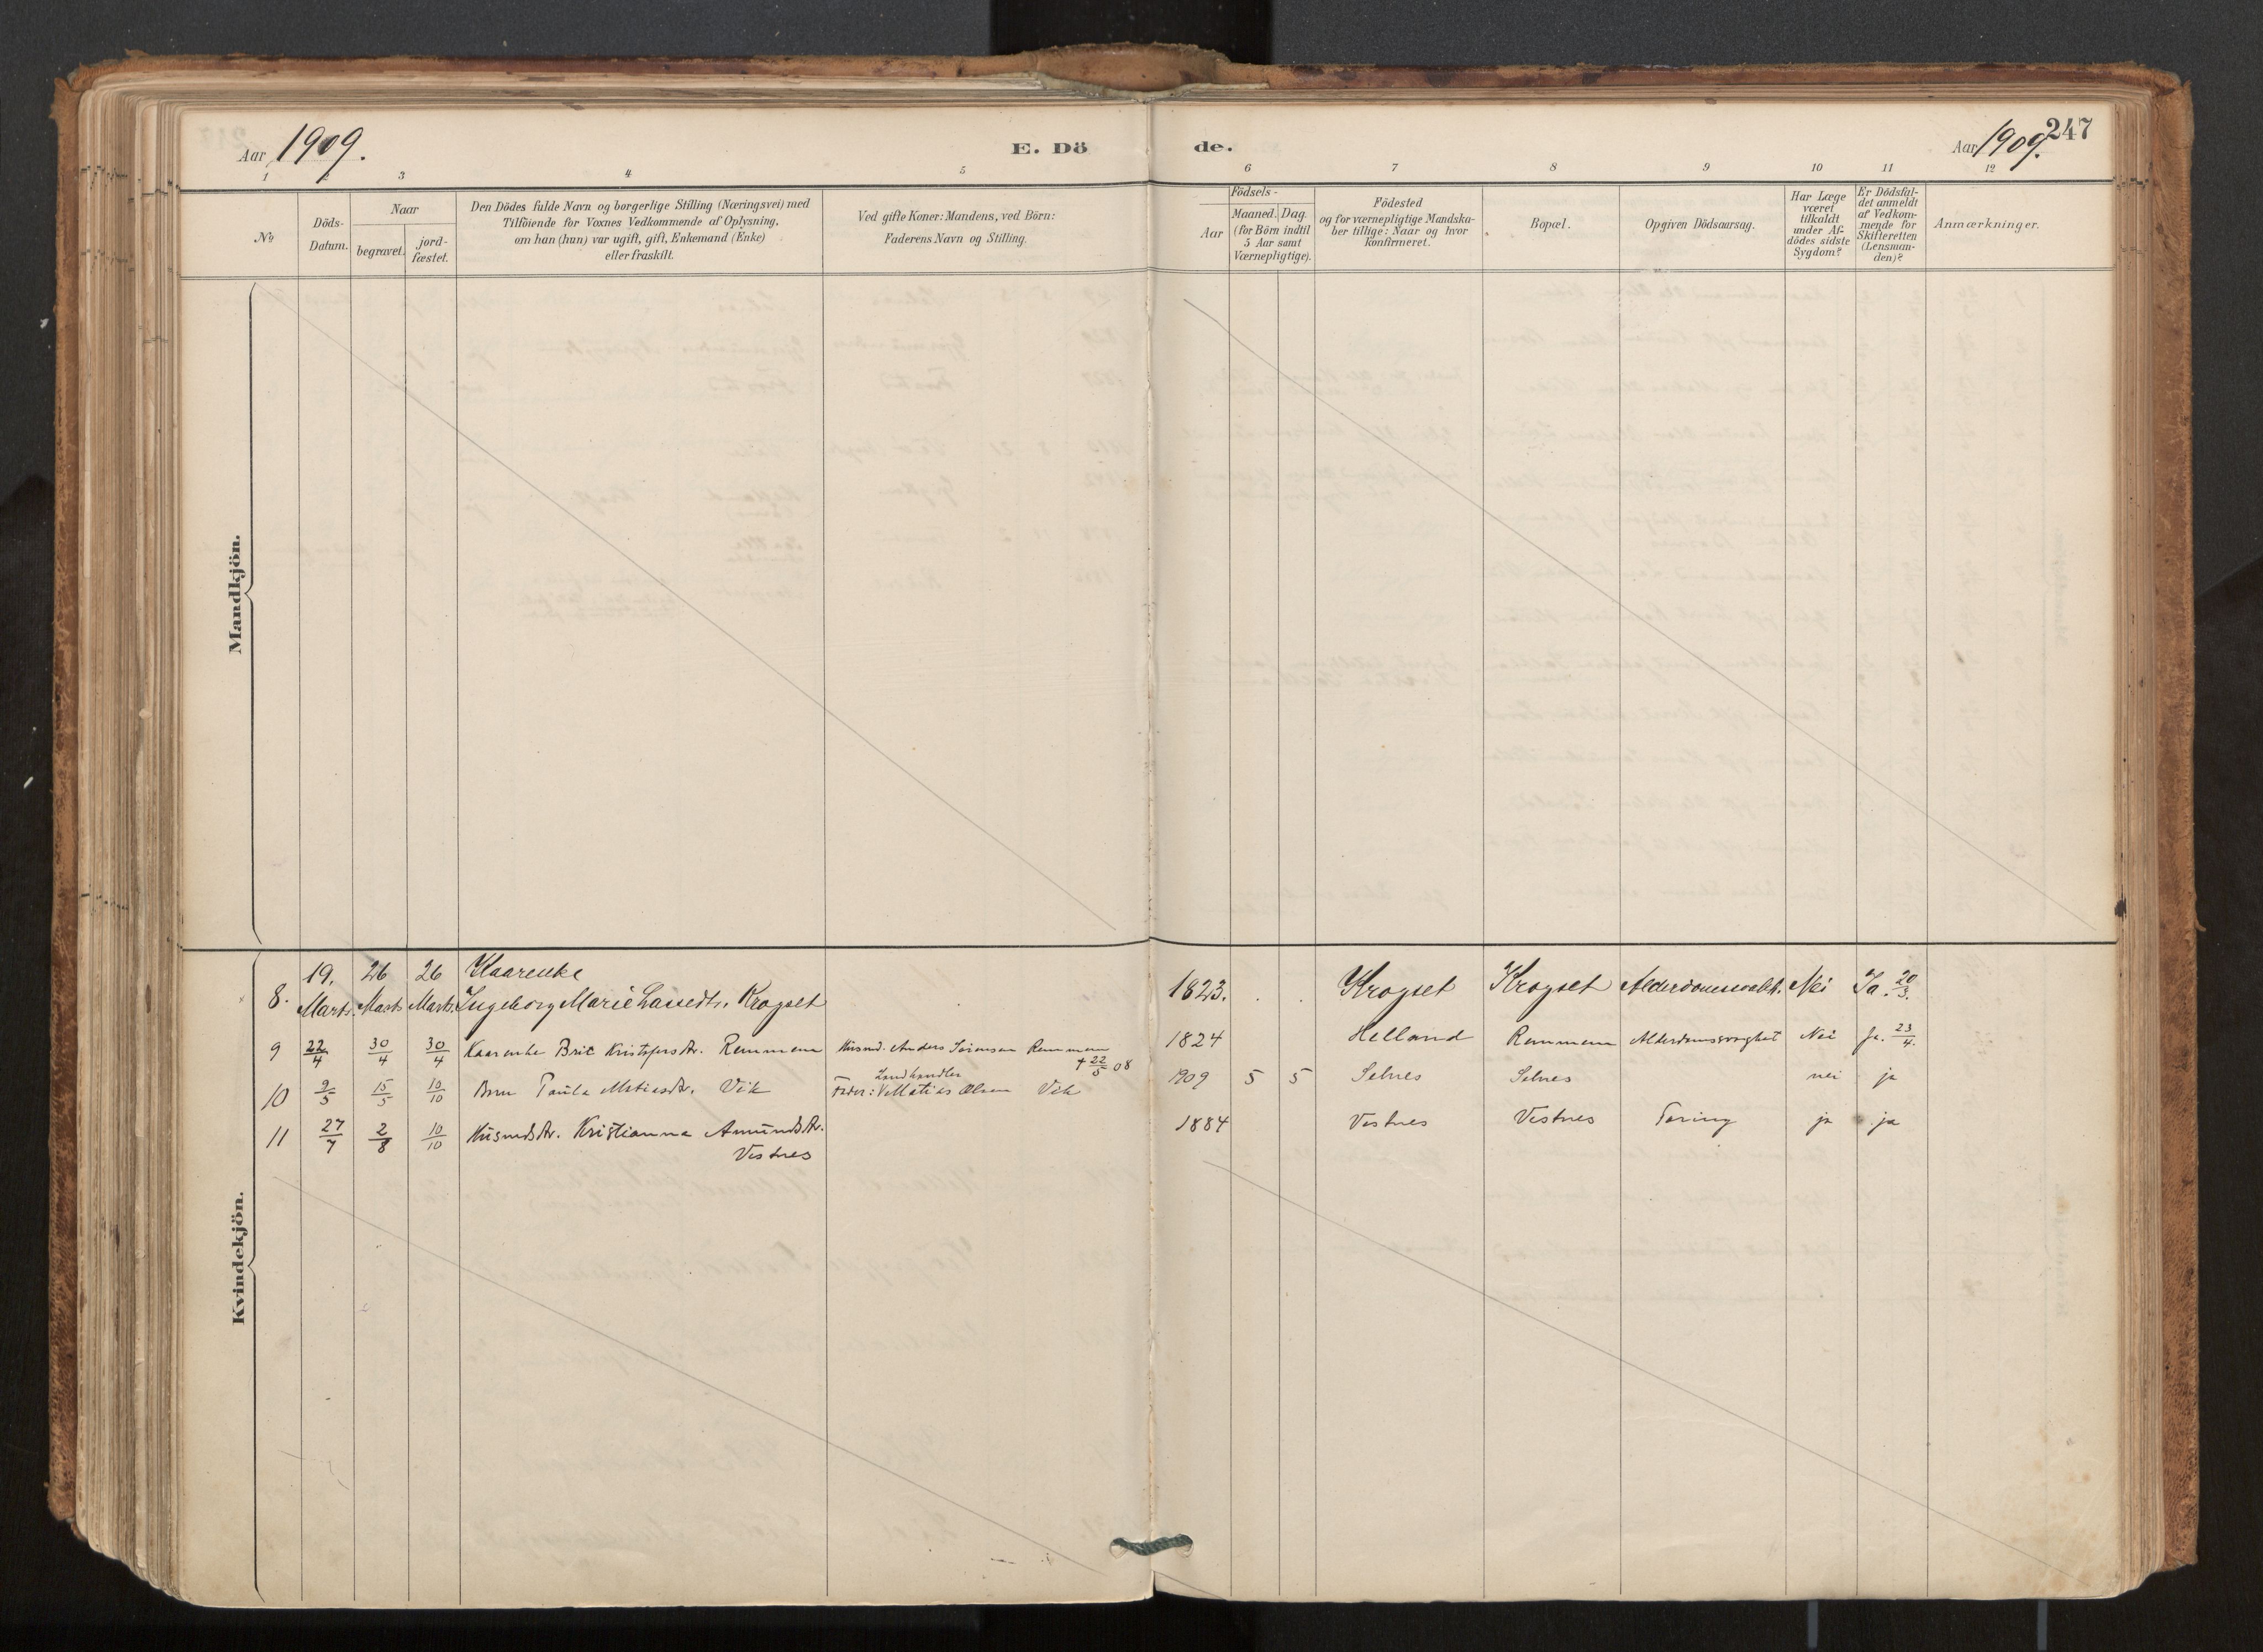 Aar 1909.
E. Dö
de.
Aar 1909.
247
1 2 3 4 5
6 7 8 9 10 11 12
№
Döds-
Datum.
Naar
begravet.
jord-
fæstet.
Den Dödes fulde Navn og borgerlige Stilling (Næringsvei) med
Tilföiende for Voxnes Vedkommende af Oplysning,
om han (hun) var ugift, gift, Enkemand (Enke)
eller fraskilt.
Ved gifte Koner: Mandens, ved Börn:
Faderens Navn og Stilling.
Födsels-
Aar
Maaned.
Dag.
(for Börn indtil
5 Aar samt
Værnepligtige).
Födested
og for værnepligtige Mandska-
ber tillige: Naar og hvor
konfirmeret.
Bopæl.
Opgiven Dödsaarsag.
Har Læge
været
tilkaldt
under Af-
dödes sidste
Sygdom?
Er Dödsfal-
det anmeldt
af Vedkom-
mende for
Skifteretten
(Lensman-
den)?
Anmærkninger.
Mandkjön.
Kvindekjön.
8. 19. Marts. 26 Marts 26 Marts. Kaarenke
Ingeborg Marie Lassedtr. Krogset
1823. Krogset Krogset Nei Ja. 20/3.
9 22/4 30/4 30/4 Kaarenke Brit Kristofersdtr. Remmem Husmd. Anders Sörensen Remmem
† 22/5 08
1824 Helland Remmem Alderdomssvaghet Nei Ja. 23/4.
10 9/5 15/5 10/10 Barn Paula Matiasdtr. Vik
Landhandler
Fader: Matias Olsen Vik
1909 5 5 Selnes Selnes nei ja
11 27/7 2/8 10/10 Husmdsdtr. Kristianna Amundsdtr.
Vestnes
1884 Vestnes Vestnes Tæring ja ja